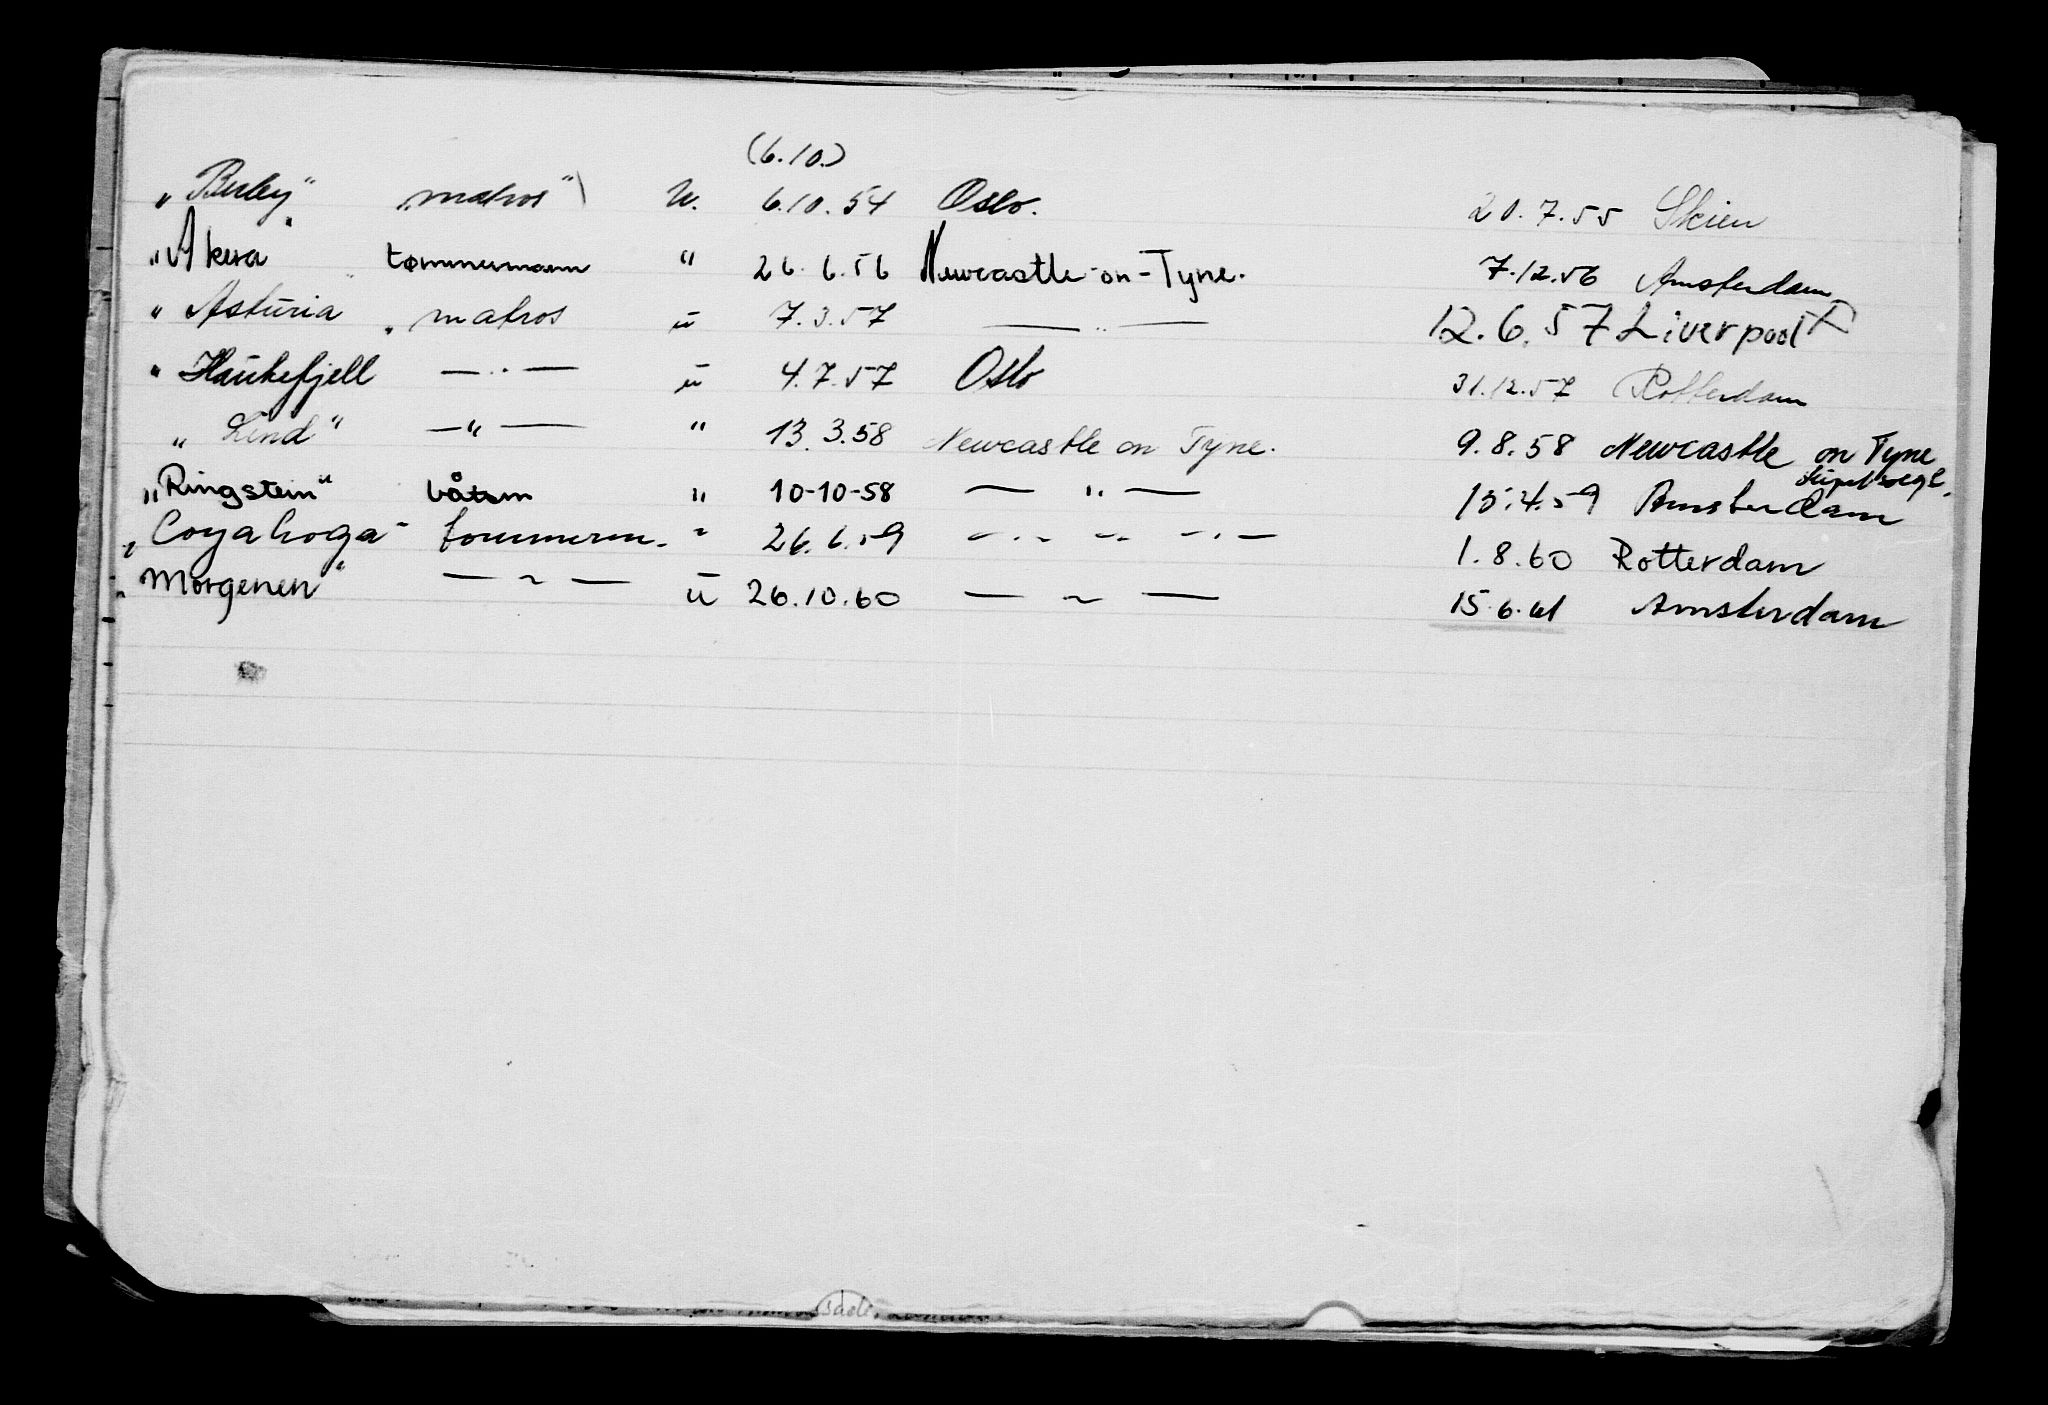 (6.10.)
„Burley" „matros" U. 6.10.54 Oslo. 20.7.55 Skien
„Akera" tømmermann " 26.6.56 Newcastle-on-Tyne. 7.12.56 Amsterdam
" Asturia „ matros u 7.3.57 — " — 12.6.57 Liverpool
" Haukefjell — " — u 4.7.57 Oslo 31.12.57 Rotterdam
„ Lind" — " — " 13.3.58 Newcastle on Tyne. 9.8.58 Newcastle on Tyne
„Ringstein" båtsm " 10-10-58 — " — 15.4.59 Amsterdam
„Coyahoga" tømmerm. " 26.6.59 — " — " — " — 1.8.60 Rotterdam
„Morgenen" — " — u 26.10.60 — " — 15.6.61 Amsterdam